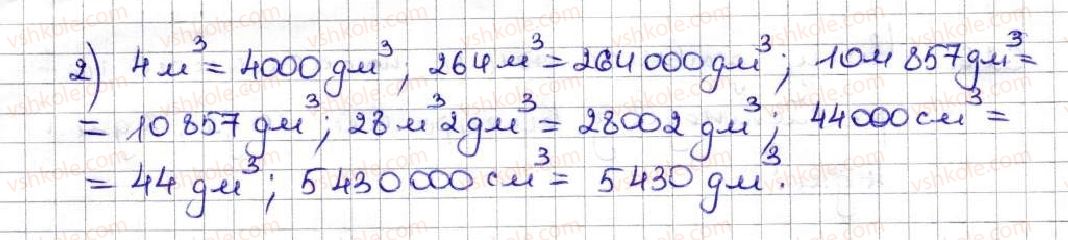 2) 4 м³ = 4000 дм³; 264 м³ = 264 000 дм³; 10 м 857 дм³ =
= 10 857 дм³; 28 м³ 2 дм³ = 28002 дм³; 44000 см³ =
= 44 дм³; 5 430 000 см³ = 5 430 дм³.